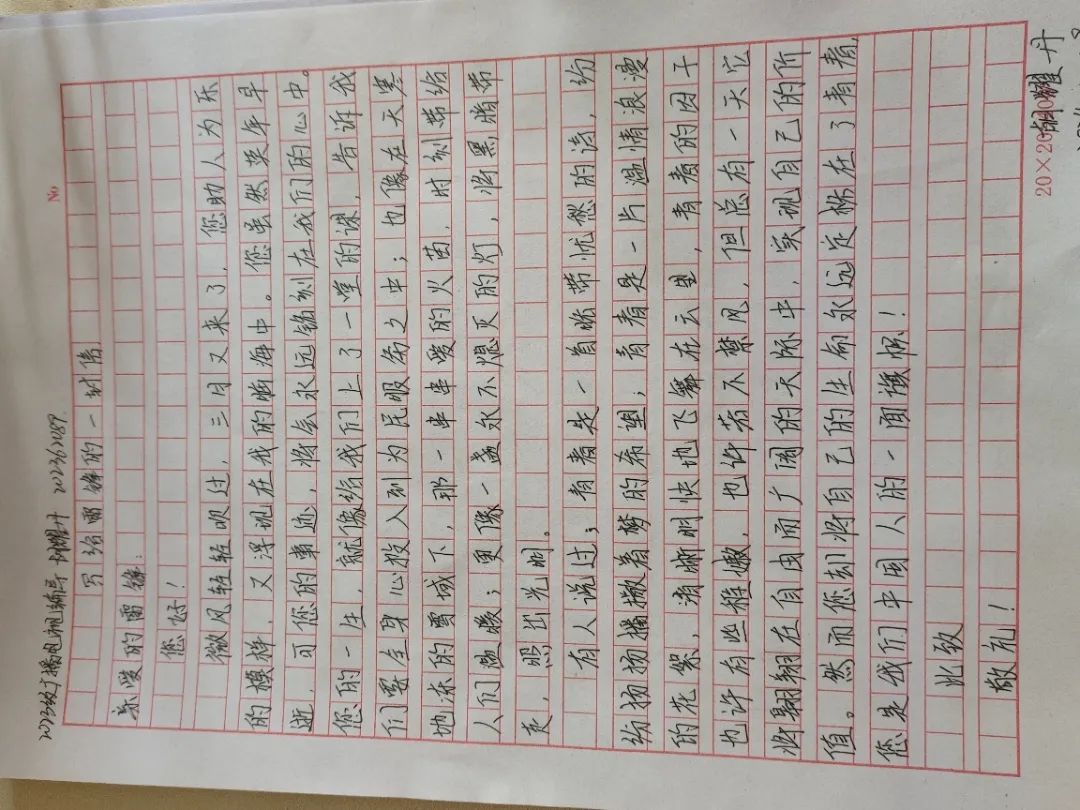 2023级广播电视编导 胡耀丹
No
写给雷锋的一封信
亲爱的雷锋：
您好！
微风轻轻吹过，三月又来了，您助人为乐
的模样，又浮现在我的脑海中。您虽然英年早
逝，可您的事迹，将会永远铭刻在我们的心中。
您的一生，就像给我们上了一堂的课，告诉我
们要全身心投入到为民服务之中；也像在天寒
地冻的雪域下，那一串串爱的火苗，时刻带给
人们温暖；更像一盏永不熄灭的灯，将黑暗带
走，照出光明。
有人说过；青春是一首略带忧愁的诗，纷
纷扬扬播撒着梦的希望；青春是一片温情浪漫
的花絮，清晰明快地飞舞在云里，青春的因子
也许有些稚嫩，也许若不禁风，但总有一天它
将翱翔在自由而广阔的天际中，实现自己的价
值。然而您却将自己的生命永远定格在了青春，
您是我们中国人的一面旗帜！
此致
敬礼！
20×20
胡耀丹